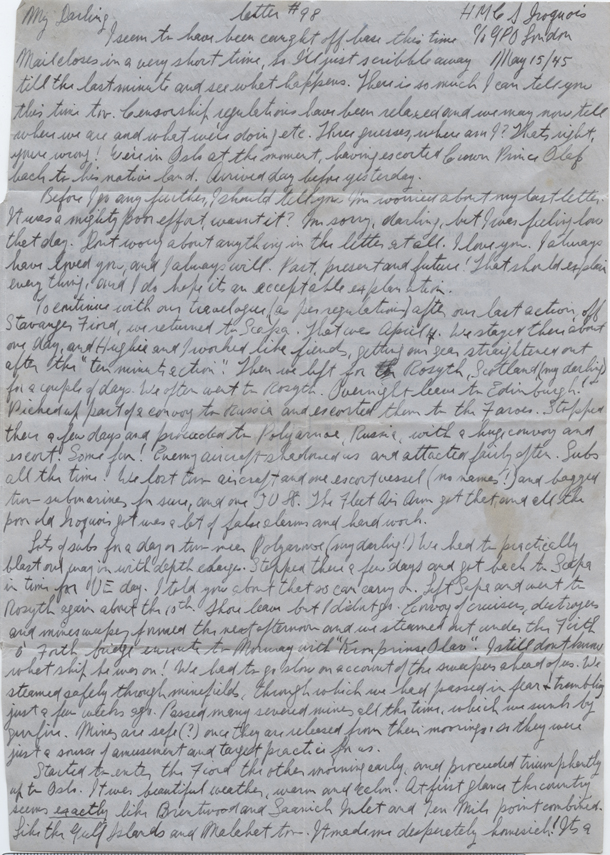 My Darling, letter #98 H.M.C.S Iroquois
I seem to have been caught off base this time % GPO London
Mail closes in a very short time, so I'll just scribble away May 15/45
till the last minute and see what happens. There is so much I can tell you
this time too. Censorship regulations have been relaxed and we may now tell
where we are and what we're doing etc. Three guesses, where am I? That's right,
you're wrong! We're in Oslo at the moment, having escorted Crown Prince Olaf
back to his native land. Arrived day before yesterday.
Before I go any further, I should tell you I'm worried about my last letter.
It was a mighty poor effort, wasn't it? I'm sorry, darling, but I was feeling low
that day. Don't worry about anything in the letter at all. I love you. I always
have loved you, and I always will. Past, present and future! That should explain
everything, and I do hope it an acceptable explanation.
To continue with our travelogue (as per regulations) after our last action, off
Stavanger Fiord, we returned to Scapa. That was April 4. We stayed there about
one day, and Hughie and I worked like fiends, getting our gear straightened out
after the "ten minute action". Then we left for Rosyth, Scotland (my darling)
for a couple of days. We often went to Rosyth. Overnight leave to Edinburgh!
Picked up part of a convoy to Russia and escorted them to the Faroes. Stopped
there a few days and proceeded to Polyarnoe, Russia, with a huge convoy and
escort. Some fun! Enemy aircraft shadowed us and attacked fairly often. Subs
all the time! We lost two aircraft and one escort vessel (no names!) and bagged
two submarines for sure, and one JU 88. The Fleet Air Arm got that, and all the
poor old Iroquois got was a lot of false alarms and hard work.
Lots of subs for a day or two near Polyarnoe (my darling!) We had to practically
blast our way in with depth charges. Stopped there a few days and got back to Scapa
in time for VE day. I told you about that so can carry on. Left Scapa and went to
Rosyth again about the 10th. Shore leave but I didn't go. Convoy of cruisers, destroyers
and minesweepers formed the next afternoon and we steamed out under the Firth
o' Forth bridge enroute to Norway with "Kronprinse Olav". I still don't know
what ship he was on! We had to go slow on account of the sweepers ahead of us. We
steamed safely through minefields, through which we had passed in fear & trembling
just a few weeks ago. Passed many severed mines all the time, which we sunk by
gunfire. Mines are safe (?) once they are released from their moorings, so they were
just a source of amusement and target practice for us.
Started to enter the Fiord the other morning early, and proceeded triumphantly
up to Oslo. It was beautiful weather, warm and calm. At first glance the country
seems exactly like Brentwood and Saanich Inlet and Ten Mile point combined.
Like the Gulf Islands and Malahat too. It made me desperately homesick! It's a